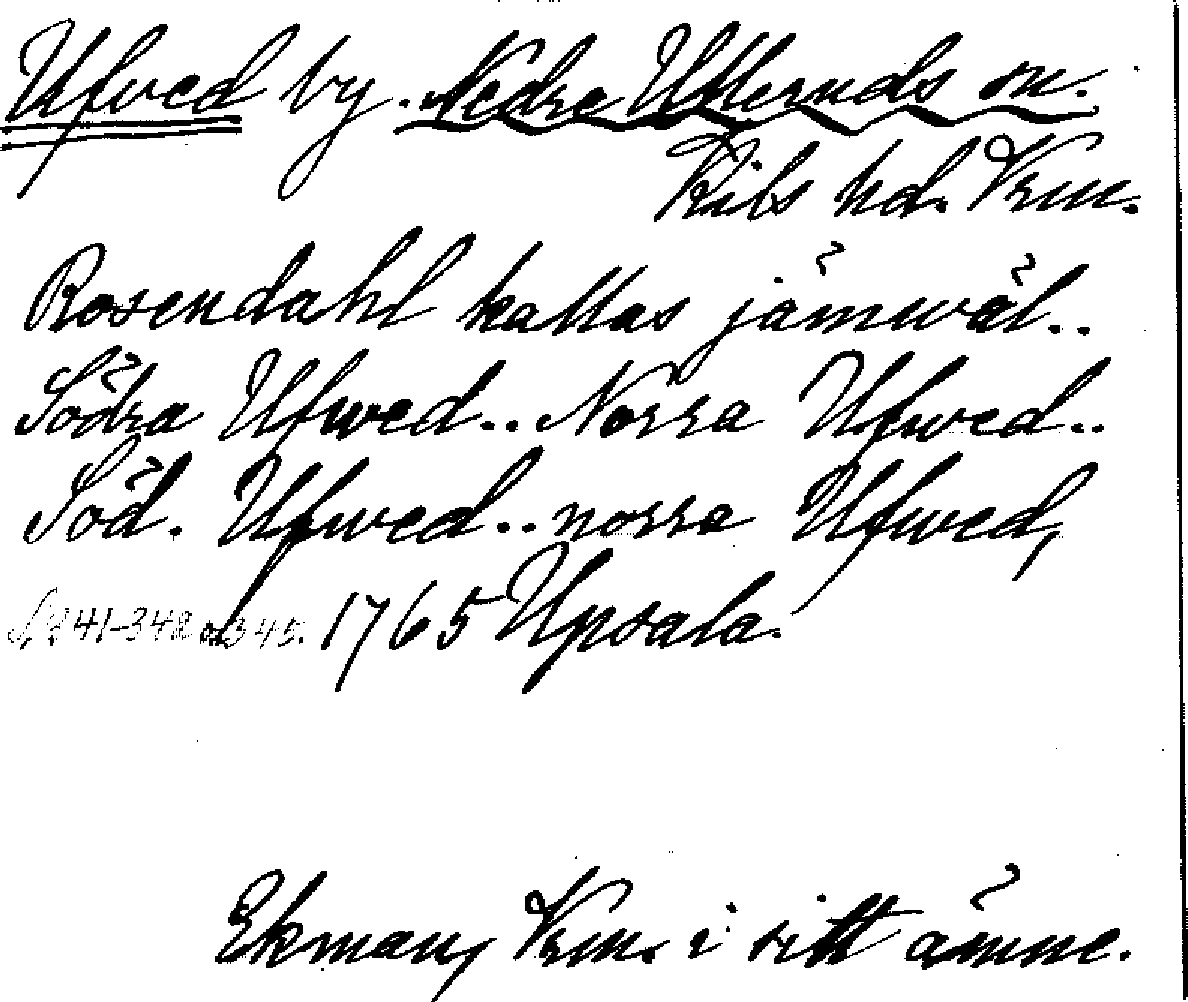 Ufwed by. Nedre Ulleruds sn.
Kils hd. Vrm.
Rosendahl kallas jämwäl..
Södra Ufwed.. Norra Ufwed..
Söd. Ufwed.. norra Ufwed,
341-342 o. 345. 1765 Upsala.
Ekman, Vrm. i sitt ämne.